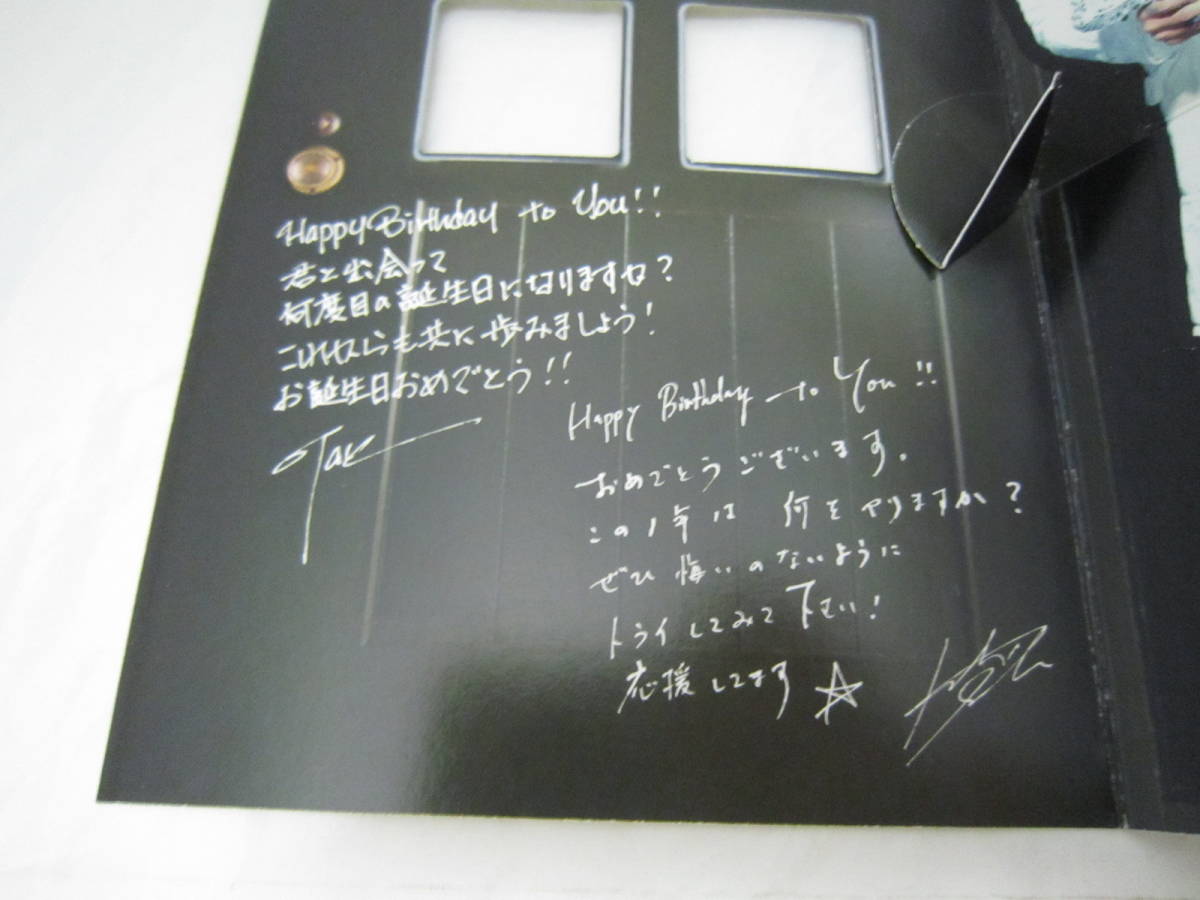 Happy Birthday to You!!
君と出会って
何度目の誕生日になりますか?
これからも共に歩みましょう!
お誕生日おめでとう!!
Tak
Happy Birthday to You!!
おめでとうございます。
この1年は何をやりますか?
ぜひ悔いのないように
トライしてみて下さい!
応援してます☆